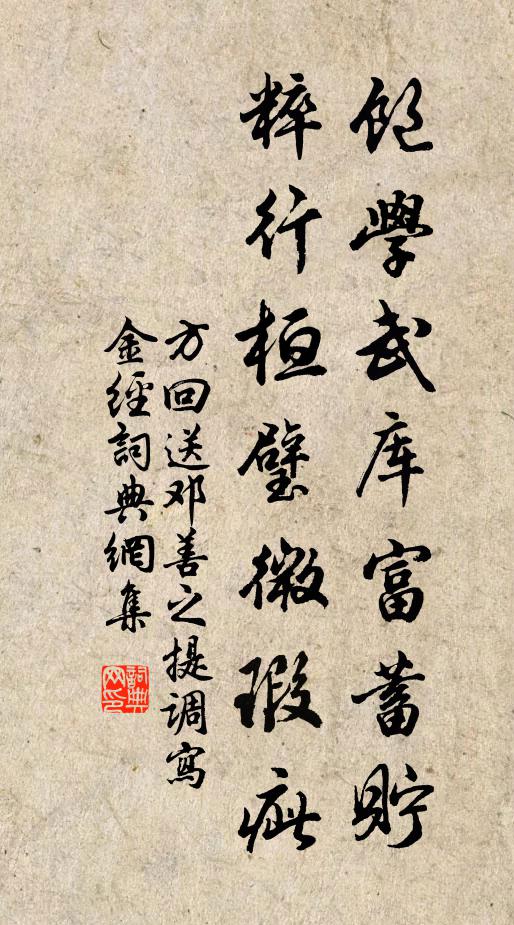 飽學武库富蓄貯
粹行桓璧微瑕疵
方回送邓善之提调寫
金經詞典網集
詞典网印